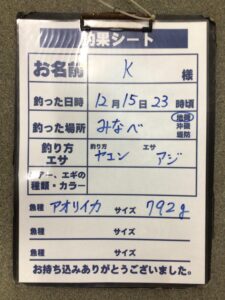 釣果シート
お名前 K 様
釣った日時 12月15日23時頃
釣った場所 みなべ 地磯 沖磯 堤防
釣り方 エサ 釣り方 ヤエン エサ アジ
ルアー、エギの種類・カラー
魚種 アオリイカ サイズ 792g
魚種 サイズ
魚種 サイズ
お持ち込みありがとうございました。